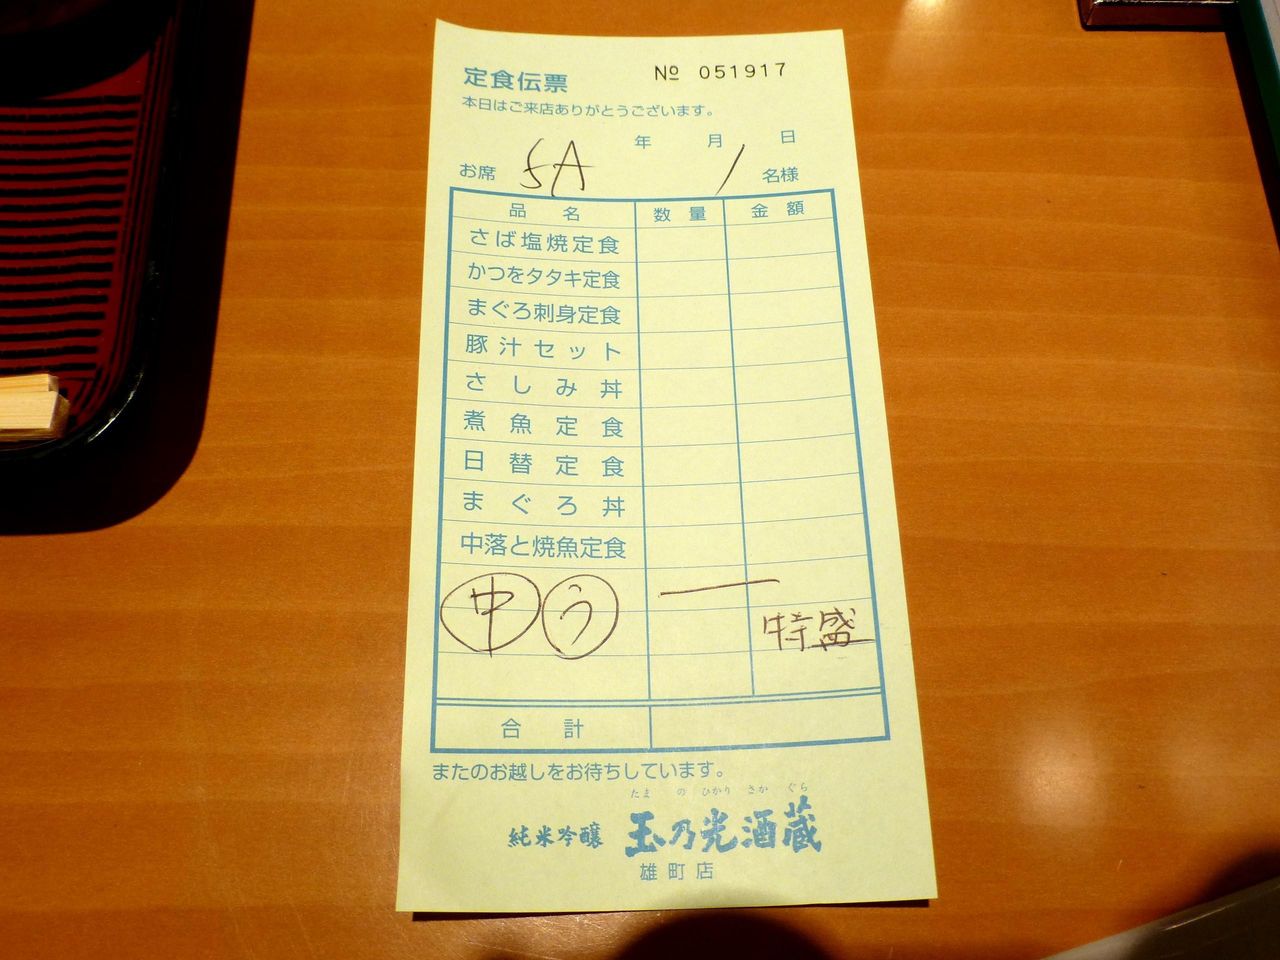 定食伝票 № 051917
本日はご来店ありがとうございます。
年 月 日
お席 5A 1 名様
品名 数量 金額
さば塩焼定食
かつをタタキ定食
まぐろ刺身定食
豚汁セット
さしみ丼
煮魚定食
日替定食
まぐろ丼
中落と焼魚定食
中 う 一
特盛
合計
またのお越しをお待ちしています。
たまのひかりさかぐら
純米吟醸 玉乃光酒蔵
雄町店